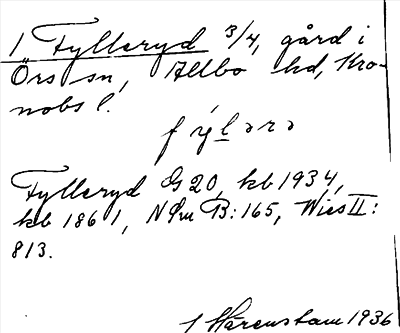 1 Fylleryd 3/4, gård i
Örs sn, Allbo hd, Kro-
nobs l.
fýlərə
Fylleryd G 20, kb 1934,
kb 1861, NSm B: 165, Wies II:
813.
I Härenstam 1936